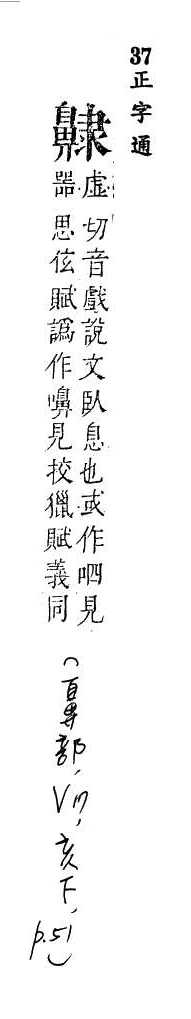 37 正字通
齂
虛器切音戲說文臥息也或作呬見
思伭賦譌作嚊見挍獵賦義同
(鼻部, 亥下, p.51)